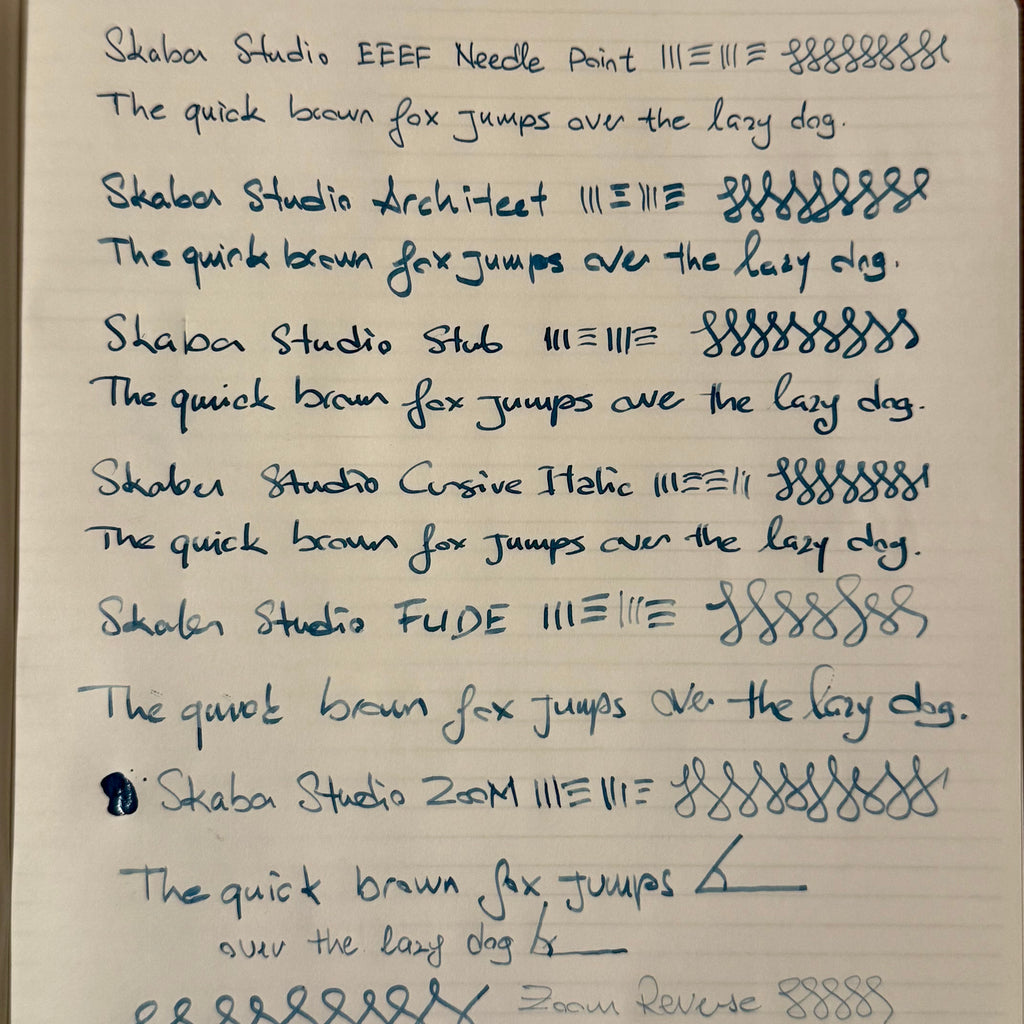 Skaba Studio EEEF Needle Point
The quick brown fox jumps over the lazy dog.
Skaba Studio Architect
The quick brown fox jumps over the lazy dog.
Skaba Studio Stub
The quick brown fox jumps over the lazy dog.
Skaba Studio Cursive Italic
The quick brown fox jumps over the lazy dog.
Skaba Studio FUDE
The quick brown fox jumps over the lazy dog.
Skaba Studio ZOOM
The quick brown fox jumps
over the lazy dog
Zoom Reverse